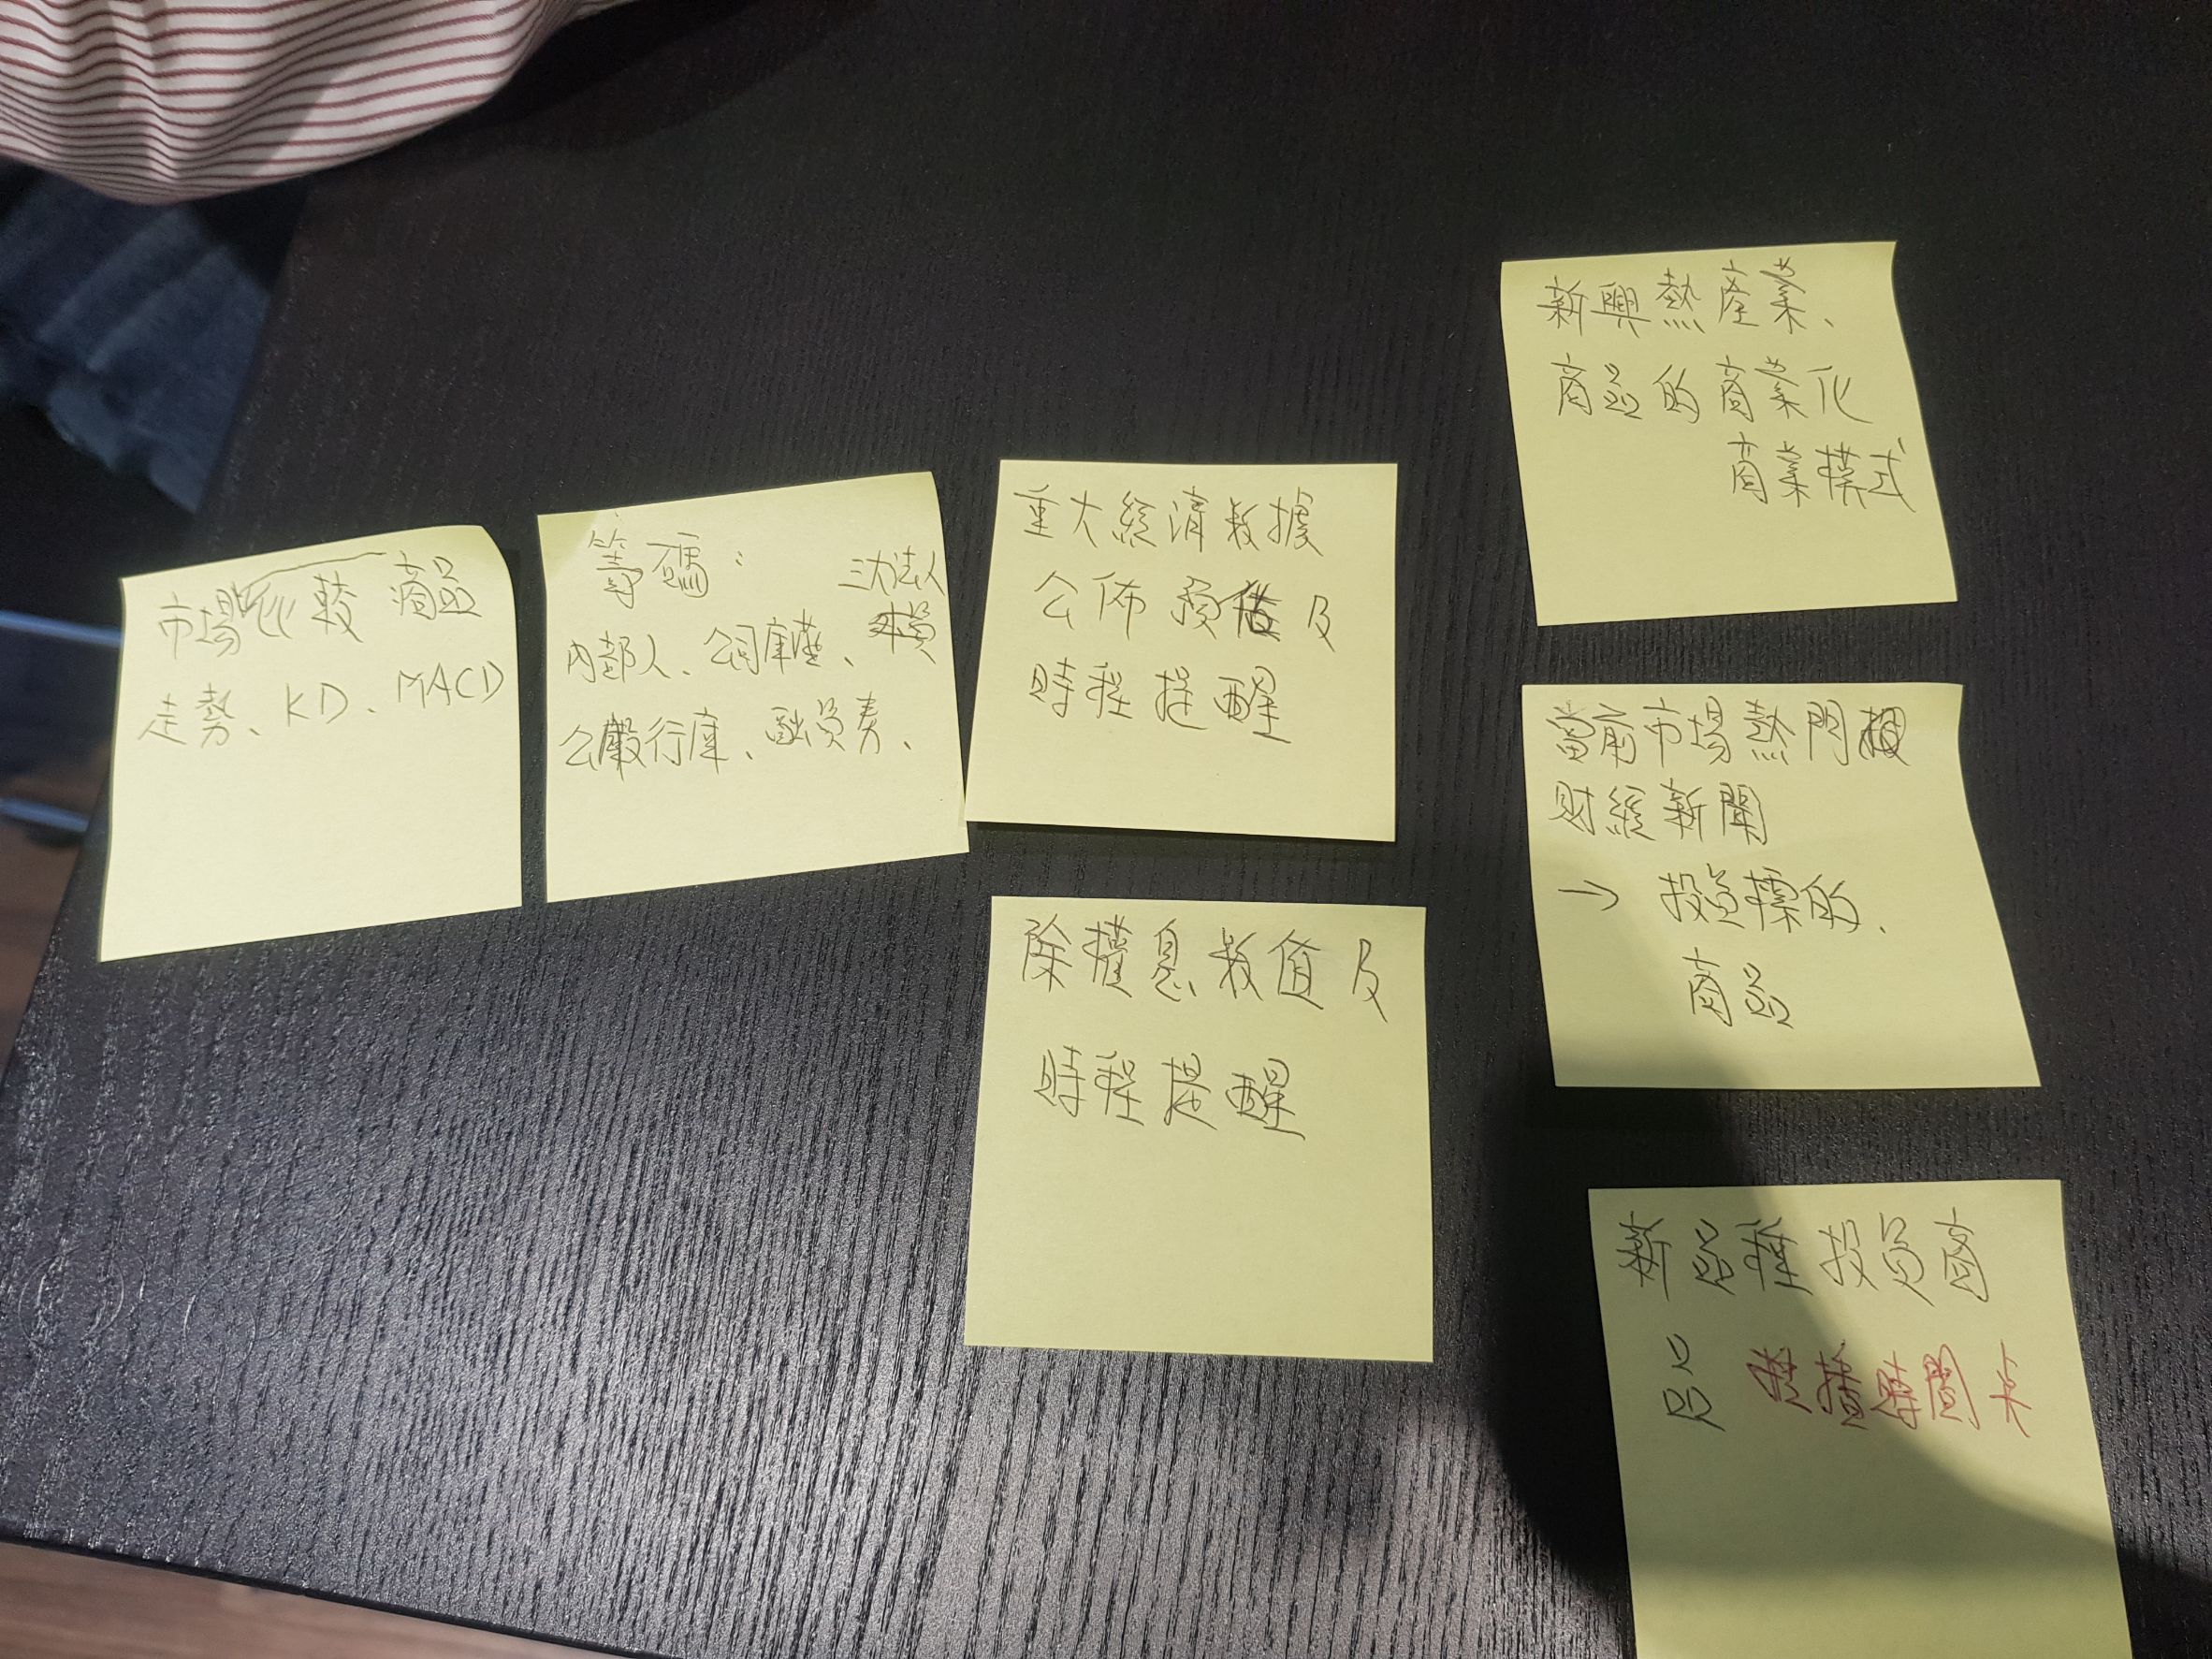 市場比較 商品
走勢、KD、MACD
籌碼:
三大法人
內部人、公司庫藏、外資
公嚴行庫、融資券、
重大經濟数據
公佈預估及
時程提醒
除權息数值及
時程提醒
新興熱產業、
商品的商業化
商業模式
當前市場熱門
財經新聞
→ 投資標的、
商品
新品種投資商
品 時間点